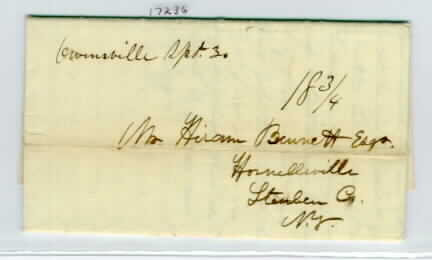 17236
Owensville Sept. 3.
18 3/4
Mr Hiram Bennett Esqr.
Hornellsville
Steuben Co.
N.Y.